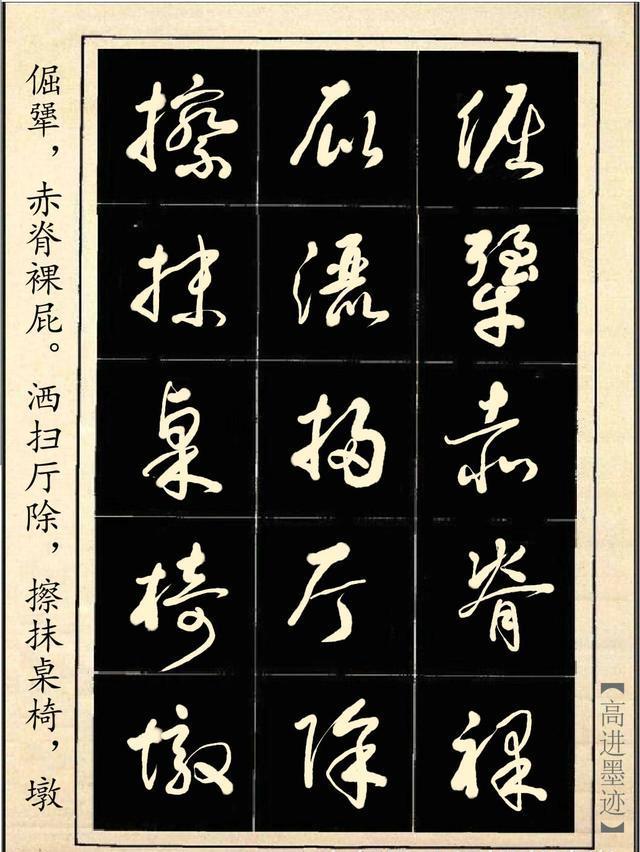 倔犟赤脊裸
屁灑掃厅除
擦抹桌椅墩
倔犟，赤脊裸屁。洒扫厅除，擦抹桌椅，墩
【高进墨迹】